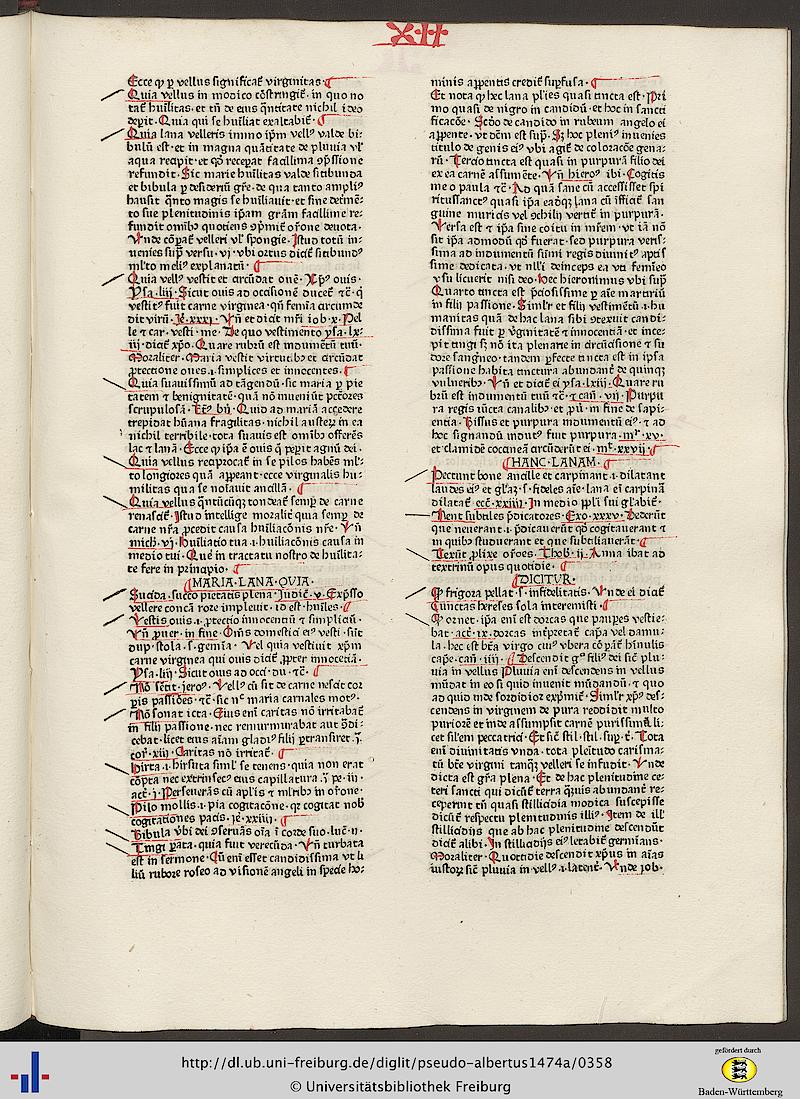 XII
Ecce ꝙ ꝑ vellus significat̄ virginitas
Quia vellus in modico cōstringit̄. in quo no
tat̄ hūilitas. et tn̄ de eius q̄ntitate nichil ideo
deꝑit. Quia qui se hūiliat exaltabit̄.
Quia lana velleris immo ip̄m vell⁹ valde bi-
bulū est. et in magna quātitate de pluvia vl̓
aqua recipit. et qd̄ receperat facillima ꝯp̄ssione
refundit. Sic marie hūilitas valde sitibunda
et bibula ꝑ desideriū gr̄e. de qua tanto ampli⁹
hausit q̄nto magis se hūiliauit. et sine detrimē-
to sue plenitudinis ip̄am grām facillime re-
fundit omib⁹ quotiens ꝯp̄mit̄ or̄one deuota.
Vnde cōꝑat̄ velleri vl̓ spongie. Istud totū in-
uenies sup̄ versu. vj. vbi ortus dicit̄ sitibund⁹
ml̓to meli⁹ explanatū.
Quia vell⁹ vestit et circūdat ouē. Xp̄s ouis.
Ysa. liij. Sicut ouis ad occisionē ducet̄ ⁊c̄. q̄
vestit⁹ fuit carne virginea. qn̄ femīa circumde
dit virū. Je. xxxj. Vn̄ et dicit mr̄i iob. x. Pel
le ⁊ car. vesti. me. De quo vestimento ysa. lx-
iij. dicit̄ xp̄o. Quare rubrū est indumētū tuū.
Moraliter. Maria vestit virtutib⁹ et circūdat
ꝓtectione oues .i. simplices et innocentes.
Quia suauissimū ad tāgendū. sic maria ꝑ pie
tatem ⁊ benignitatē. quā nō inueniūt pctōres
scrupulosā. bn̄. Quid ad mariā accedere
trepidat hūana fragilitas. nichil austerū in ea
nichil terribile. tota suauis est omib⁹ offerēs
lac ⁊ lanā. Ecce ꝙ ip̄a ē ouis q̄ peꝑit agnū dei.
Quia vellus reciprocat̄ in se pilos habēs ml̓-
to longiores quā appeant. ecce virginalis hu-
militas qua se nosauit ancillā.
Quia vellus q̄ntūcūq̄ tondeat̄ semꝑ de carne
renascit̄. Istud intellige moralit̓ quia semꝑ de
carne nr̄a ꝓcedit causa hūiliacōnis nr̄e. Vn̄
mich. vj. hūiliatio tua .i. huiliacōnis causa in
medio tui. Que in tractatu nostro de huilita-
te fere in principio.
MARIA. LANA. QVIA.
Sucida. succo pietatis plena. Judic̄. v. Exp̄sso
vellere concā rore impleuit. id est hūiles
Vestis ouis .i. ꝓtectio innocentū ⁊ simpliciū.
Vn̄ ꝓuer. in fine. Om̄s domestici ei⁹ vesti. sūt
dup. stola .s. gemīa. Vel quia vestiuit xp̄m
carne virginea qui ouis dicit̄ ꝓpter innocētiā.
Ysa. liij. Sicut ouis ad occi. du. ⁊c̄.
Nō sētit. jero⁹. Vell⁹ cū sit de carne nescit cor
ꝑis passiōes. ⁊c̄. sic nec maria carnales mot⁹.
Nō sonat icta. Eius eni caritas nō irritabat̄
in filij passione. nec remurmurabat aut ꝯdi-
cebat. licet eius aiam gladi⁹ filij ꝑtransiret. j.
cor. xiij. Caritas nō irritat̄.
Hirta .i. hirsuta siml̓ se tenens. quia non erat
cōpta nec extrinsec⁹ eius capillatura. j. pe. iij.
act. j. Perseuerās cū apl̓is ⁊ ml̓rib⁹ in or̄one.
Pilo mollis .i. pia cogitacōne. qꝛ cogitat nob̄
cogitationes pacis. je. xxiiij.
Bibula v̓bi dei ꝯseruās oīa ī corde suo. luc̄. ij.
Tingi ꝑata. quia fuit verecūda. Vn̄ turbata
est in sermone. Cū eni esset candidissima vt li
liū rubore roseo ad visionē angeli in specie ho-
minis apparentis credit̄ supfusa.
Et nota ꝙ hec lana pl̓ies quasi tincta est. Pri
mo quasi de nigro in candidū. et hoc in sancti
ficacōe. Scd̓o de candido in rubeum angelo ei
apparente. vt dcm̄ est sup̄. Sꝫ hoc pleni⁹ inuenies
titulo de genis ei⁹ vbi agit̄ de coloracōe gena-
rū. Tercio tincta est quasi in purpurā filio dei
ex ea carnē assumēte. Vn̄ hiero⁹ ibi. Cogitis
me o paula ⁊c̄. Ad quā sane cū accessisset spi
ritussanct⁹ quasi ip̄a eadēq̄ lana cū īfficit̄ san
guine muricis vel ꝯchilij vertit̄ in purpurā.
Versa est ⁊ ip̄a sine coitu in mr̄em. vt iā nō
sit ip̄a admodū qd̄ fuerat. sed purpura veris-
sima ad indumentū sūmi regis diuinit⁹ aptis
sime dedicata. vt nll̓i deinceps ea vti femīeo
vsu licuerit nisi deo. Hec hieronimus vbi sup̄
Quarto tincta est p̄ciosissime ꝑ aīe martiriū
in filij passione. Siml̓r et filij vestimētū .i. hu
manitas quā de hac lana sibi ꝯtexuit candi-
dissima fuit ꝑ v̓ginitatē ⁊ innocentiā. et ince-
pit tingi sꝫ nō ita plenarie in circūcisione ⁊ su
dore sangneo. tandem ꝑfecte tincta est in ipsa
passione habita tinctura abundāt̓ de quinqꝫ
vulnerib⁹. Vn̄ et dicit̄ ei ysa. lxiij. Quare ru
brū est indumentū tuū ⁊c̄. ⁊ cañ. vij. Purpu
ra regis iūcta canalib⁹. et ꝓū. in fine de sapi-
entia. Bissus et purpura indumentū ei⁹. ⁊ ad
hoc signandū indut⁹ fuit purpura. mr̄. xv.
et clamidē coccineā circūderūt ei. mt̄. xxvij.
HANC. LANAM.
Pectunt bone ancille et carpinant .i. dilatant
laudes ei⁹ et gl̓az .s. fideles aīe. lana eī carpinā
dilatat̄ ecc̄. xxiiij. In medio ppl̓i sui gl̓abit̄.
Nent subules p̄dicatores. Exo. xxxv. Dederūt
que neuerant .i. p̄dicauerūt qd̄ cogitauerant ⁊
in quib⁹ studuerant et que subtiliauerāt
Texūt ꝓlixe or̄oes. Thob. ij. Anna ibat ad
textrinū opus quotidie.
DICITVR.
Ꝙ frigora pellat .s. infidelitatis. Vnde ei dicit̄
Cunctas hereses sola interemisti
Ꝙ ornet. ip̄a eni est dorcas que paupes vestie-
bat. act. ix. dorcas interp̄tat̄ cap̄a vel damu-
la. hec est bt̄a virgo cui⁹ vbera cōꝑāt̄ hinulis
cap̄e. cañ. iiij. Descendit gͦ fili⁹ dei sic̄ plu-
uia in vellus Pluuia eni descendens in vellus
mūdat in eo si quid inuenit mūdandū. ⁊ quo
ad quid inde sordidior exp̄mit̄. Siml̓r xp̄s des-
cendens in virginem de pura reddidit multo
puriorē et inde assumpsit carnē purissimā li-
cet sil̓em peccatrici. Et sic̄ stil. stil. sup. t̄. Tota
eni diuinitatis vnda. tota plenitudo carisma-
tū bt̄e virgini tanqꝫ velleri se infudit. Vnde
dicta est gr̄a plena. Et de hac plenitudine ce-
teri sancti qui dicūt̄ terra q̄uis abundant̓ re-
ceperint tn̄ quasi stillicidia modica suscepisse
dicūt̄ respectu plenitudinis illi⁹. Item de ill̓
stillicidijs que ab hac plenitudine descendūt
dicit̄ alibi. In stillicidijs ei⁹ letabit̄ germians.
Moraliter. Quotidie descendit xp̄us in aīas
iustorꝫ sic̄ pluuia in vell⁹ .i. latent̓. Vnde job.
http://dl.ub.uni-freiburg.de/diglit/pseudo-albertus1474a/0358
© Universitätsbibliothek Freiburg
gefördert durch
Baden-Württemberg